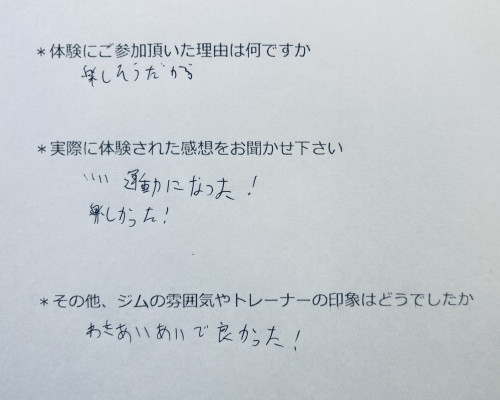 *体験にご参加頂いた理由は何ですか
楽しそうだから
*実際に体験された感想をお聞かせ下さい
いい運動になった!
楽しかった!
*その他、ジムの雰囲気やトレーナーの印象はどうでしたか
わきあいあいで良かった!